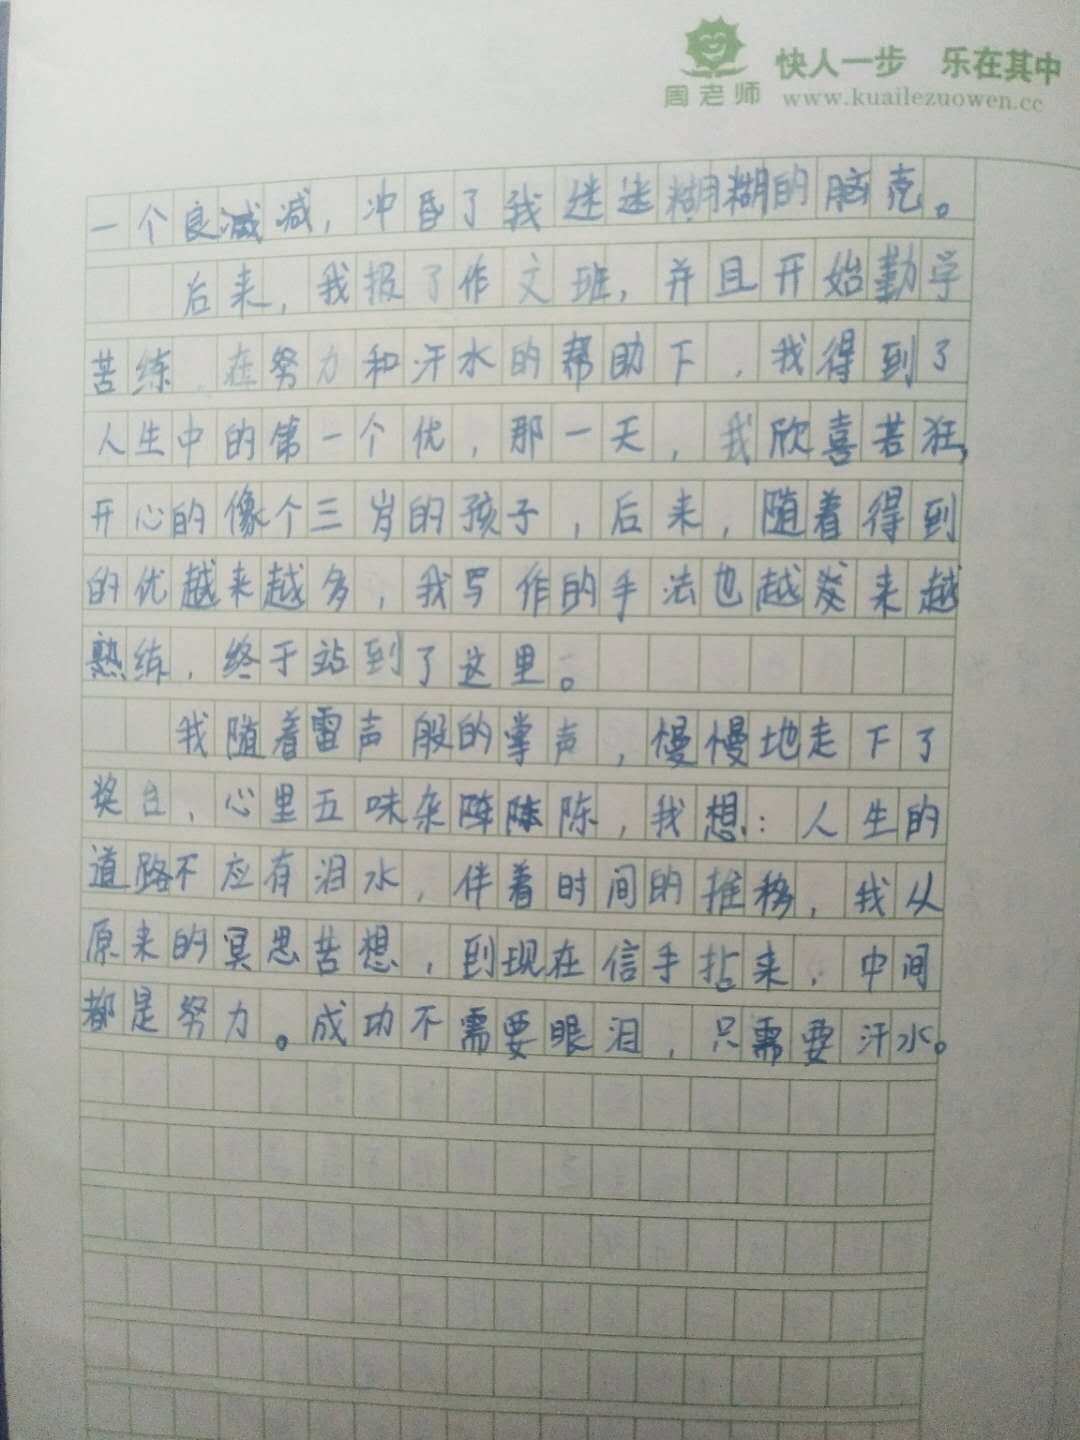 快人一步 乐在其中
周老师 www.kuailezuowen.cc
一个良减减，冲昏了我迷迷糊糊的脑壳。
后来，我报了作文班，并且开始勤学
苦练，在努力和汗水的帮助下，我得到了
人生中的第一个优，那一天，我欣喜若狂，
开心的像个三岁的孩子，后来，随着得到
的优越来越多，我写作的手法也越发来越
熟练，终于站到了这里。
我随着雷声般的掌声，慢慢地走下了
奖台，心里五味杂阵陈陈，我想：人生的
道路不应有泪水，伴着时间的推移，我从
原来的冥思苦想，到现在信手拈来，中间
都是努力。成功不需要眼泪，只需要汗水。